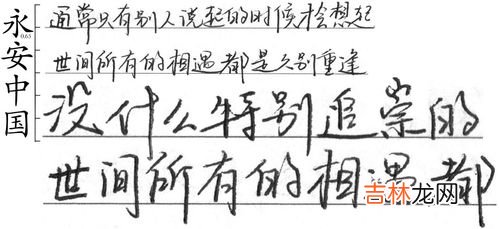 永安中国
0.65
通常只有别人说起的时候才会想起
世间所有的相遇都是久别重逢
没什么特别追崇的
世间所有的相遇都
吉林龙网